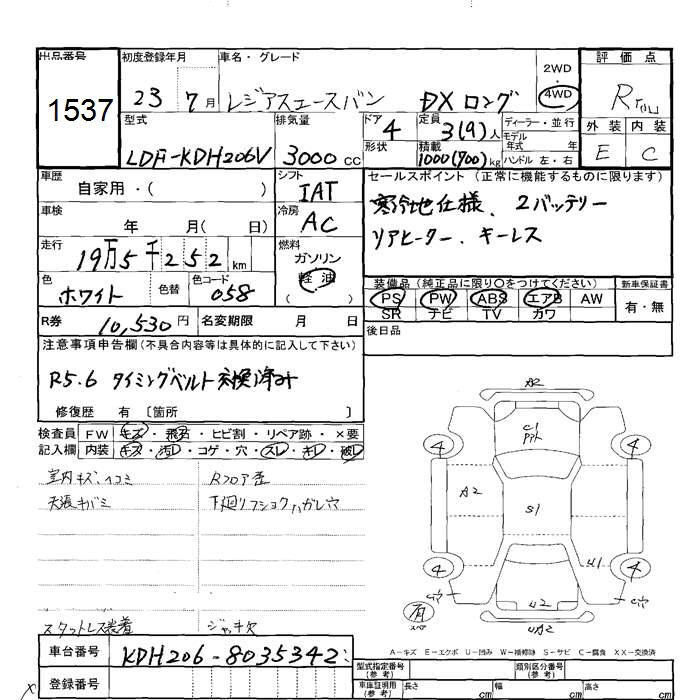 出品番号
1537
初度登録年月
23 7月
車名・グレード
レジアスエースバン DXロング
2WD・
4WD
評価点
型式
LDF-KDH206V
排気量
3000cc
ドア
4
形状
定員
3(9)人
積載
1000(700)kg
ディーラー・並行
モデル
年式 年
ハンドル 左・右
外装 内装
E C
車歴
自家用・( )
シフト
IAT
車検
年 月( 日)
冷房
AC
走行
19万5千252km
燃料
ガソリン
軽油
( )
色
ホワイト
色替
色コード
058
セールスポイント (正常に機能するものに限ります)
寒冷地仕様、2バッテリー
リアヒーター、キーレス
装備品(純正品に限り○をつけてください)
新車保証書
PS PW ABS エアB AW
SR ナビ TV カワ
有・無
R券
10,530円
名変期限 月 日
後日品
注意事項申告欄(不具合内容等は具体的に記入して下さい)
R5.6 タイミングベルト交換済み
修復歴 有 〔箇所 〕
検査員
記入欄
FW キズ・飛石・ヒビ割・リペア跡・×要
内装 キズ・汚レ・コゲ・穴・スレ・キレ・破レ
室内キズ、ヘコミ
天張キバミ
Rフロア歪
下廻リフショクハガレ穴
A2
C1
PPハゲ
4
4
A2
S1
U1
4
4
穴
穴
U2
UA2
有
スペア
スタットレス装着
ジャッキ欠
A-キズ E-エクボ U-凹み W-補修跡 S-サビ C-腐食 XX-交換済
車台番号
KDH206-8035342
登録番号
型式指定番号
(参考)
類別区分番号
(参考)
車庫証明用
(参考)
長さ cm 幅 cm 高さ cm